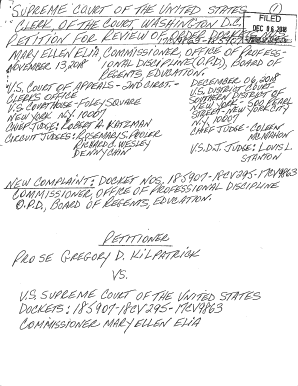 "SUPREME COURT OF THE UNITED STATES ①
CLERK OF THE COURT, WASHINGTON D.C.
FILED
DEC 06 2018
PETITION FOR REVIEW OF ORDER DOCKETS
MARY ELLEN ELIA, COMMISSIONER, OFFICE OF PROFESS-
NOVEMBER 13, 2018 IONAL DISCIPLINE (O.P.D.), BOARD OF
REGENTS, EDUCATION.
DECEMBER 06, 2018
U.S. COURT OF APPEALS - 2ND CIRCT. -
CLERKS OFFICE
U.S. COURTHOUSE - FOLEY SQUARE
NEW YORK NY 10007
CHIEF JUDGE: ROBERT A. KATZMAN
CIRCUIT JUDGES: ROSEMARY S. POOLER
RICHARD C. WESLEY
DENNY CHIN
U.S. DISTRICT COURT-
SOUTHERN DISTRICT OF
NEW YORK - 500 PEARL
STREET - NEW YORK CITY
NY, 10007
CHIEF JUDGE - COLEEN
McMAHON
U.S.D.J. JUDGE: LOUIS L.
STANTON
NEW COMPLAINT: DOCKET NOS. 18-5907-18CV295-17CV9863
COMMISSIONER, OFFICE OF PROFESSIONAL DISCIPLINE
O.P.D., BOARD OF REGENTS, EDUCATION.
PETITIONER
PRO SE GREGORY D. KILPATRICK
VS.
U.S. SUPREME COURT OF THE UNITED STATES
DOCKETS: 18-5907-18CV295-17CV9863
COMMISSIONER MARY ELLEN ELIA